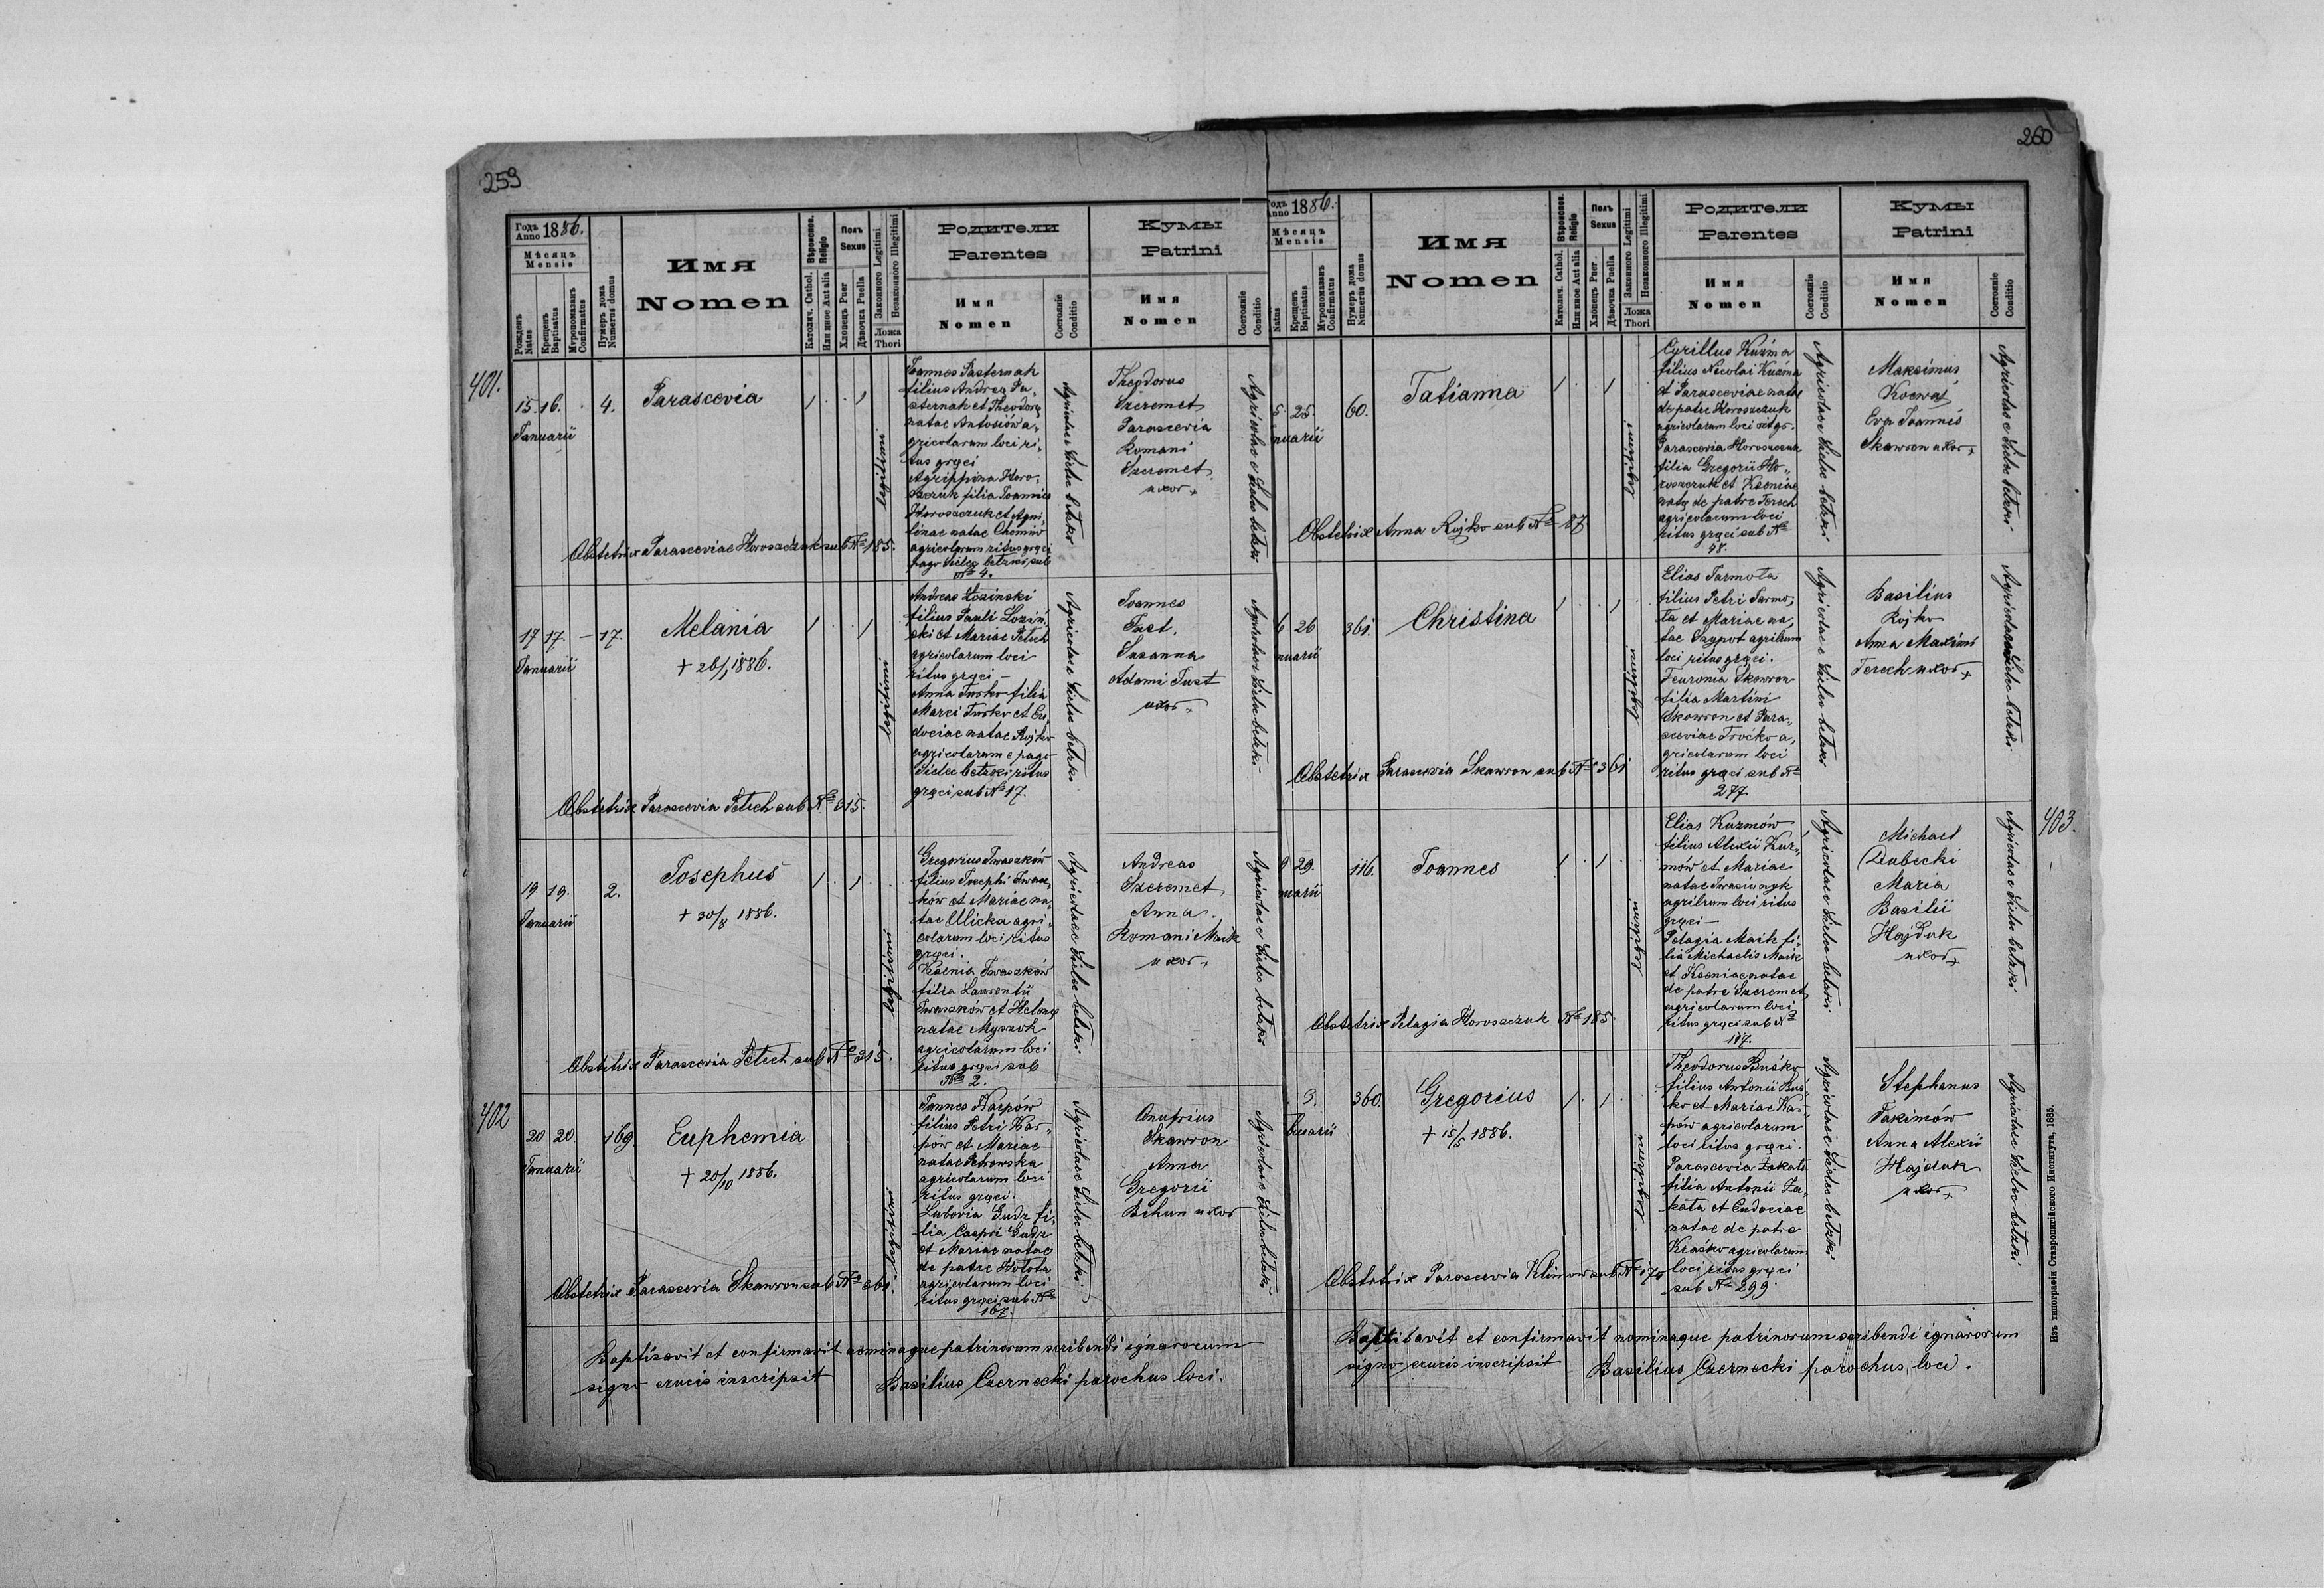 259
Годъ Anno 1886.
Мѣсяцъ
Mensis
Рожденъ Natus
Крещенъ Baptisatus
Мѵропомазанъ Confirmatus
Нумеръ дома Numerus domus
Имя
Nomen
Вѣроиспов. Religio
Католич. Cathol.
Или иное Aut alia
Полъ
Sexus
Хлопецъ Puer
Дѣвочка Puella
Законного Legitimi
Незаконного Illegitimi
Ложа
Thori
Родители
Parentes
Имя
Nomen
Состояніе Conditio
Кумы
Patrini
Имя
Nomen
Состояніе Conditio
401.
15. 16. . 4.
Januarii
Parascevia
1 . . 1
legitimi
Joannes Pasternak
filius Andrea Pa„
sternak et Theodorę
natae Antosiów a„
gricolarum loci ri„
tus gręci
Agrippina Horo„
szczuk filia Joannis
Horoszczuk et Agri„
linae natae Chomiw
agricolarum ritus gręci
pago Sielec bełzki sub
No 4.
Agricolae Sielec bełzki
Theodorus
Szeremet
Parascevia
Romani
Szeremet
uxor +
Agricolae Sielec bełzki
Obstetrix Parasceviae Horoszczuk sub No 185.
17 17. – 17.
Januarii
Melania
+ 26/1 1886.
1 . . 1
legitimi
Andreas Łozinski
filius Pauli Lozin„
ski et Mariae Petech
agricolarum loci
ritus gręci –
Anna Jusko filia
Marci Jusko et Eu„
dociae natae Rojko
agricolarum e pago
Sielec bełzki ritus
gręci sub No 17.
Agricolae Sielec bełzki
Joannes
Just.
Susanna
Adami Just
uxor +
Agricolae Sielec bełzki
Obstetrix Parascevia Petech sub No 315.
19 19. 2.
Januarii
Josephus
+ 30/8 1886.
1 . 1 .
legitimi
Gregorius Iwaszków
filius Josephi Iwasz„
ków et Mariae na„
tae Ulicka agri„
colarum loci ritus
gręci.
Ksenia Iwaszków
filia Laurentii
Iwaszków et Helenę
natae Myszok
agricolarum loci
ritus gręci sub
No 2.
Agricolae Sielec bełzki
Andreas
Szeremet
Anna
Romani Maik
uxor +
Agricolae Sielec bełzki
Obstetrix Parascevia Petech sub No 315.
402
20 20. 169.
Januarii
Euphemia
+ 20/10 1886.
legitimi
Joannes Karpów
filius Petri Kar„
pów et Mariae
natae Petrowska
agricolarum loci
ritus gręci.
Lubovia Gudz fi„
lia Caspri Gudz
et Mariae natae
de patre Hołota
agricolarum loci
ritus gręci sub No
167.
Agricolae Sielec bełzki
Onufrius
Skawron
Anna
Gregorii
Behun uxor
Agricolae Sielec bełzki
Obstetrix Parascevia Skawron sub No 361.
Baptisavit et confirmavit nominaque patrinorum scribendi ignarorum
signo crucis inscripsit Basilius Czernecki parochus loci.
260
Годъ Anno 1886.
Мѣсяцъ
Mensis
Natus
Крещенъ Baptisatus
Мѵропомазанъ Confirmatus
Нумеръ дома Numerus domus
Имя
Nomen
Вѣроиспов. Religio
Католич. Cathol.
Или иное Aut alia
Полъ
Sexus
Хлопецъ Puer
Дѣвочка Puella
Законного Legitimi
Незаконного Illegitimi
Ложа
Thori
Родители
Parentes
Имя
Nomen
Состояніе Conditio
Кумы
Patrini
Имя
Nomen
Состояніе Conditio
5 25. 60.
nuarii
Tatianna
1 . 1
legitimi
Cyrillus Kuźma
filius Nicolai Kuźma
et Parasceviae natae
de patre Horoszczuk
agricolarum loci
Parascevia Horoszczuk
filia Gregorii Ho„
roszczuk et Kseniae
natę de patre Terech
agricolarum loci
ritus gręci sub No
48.
Agricolae Sielec bełzki
Maksimus
Kocwaj
Eva Joannis
Skawron uxor +
Agricolae Sielec bełzki
Obstetrix Anna Rojko sub No 87
6 26 361.
nuarii
Christina
1 . 1
legitimi
Elias Jarmoła
filius Petri Jarmo„
ła et Mariae na„
tae Szypot agrilrum
loci ritus gręci.
Feuronia Skawron
filia Martini
Skawron et Para„
sceviae Troćko a„
gricolarum loci
ritus gręci sub No
277.
Agricolae Sielec bełzki
Basilius
Rojko
Anna Maximi
Terech uxor +
Agricolae Sielec bełzki
Obstetrix Parascevia Skawron sub No 361
403.
9 29. 116.
nuarii
Joannes
1 . 1 .
legitimi
Elias Kuzmów
filius Alexii Kuz„
mów et Mariae
natae Iwasiunyk
agrilrum loci ritus
gręci –
Pelagia Maik fi„
lia Michaelis Maik
et Kseniae natae
de patre Szeremet
agricolarum loci
ritus gręci sub No
187.
Agricolae Sielec bełzki
Michael
Dubecki
Maria
Basilii
Hajduk
uxor +
Agricolae Sielec bełzki
Obstetrix Pelagia Horoszczuk No 185.
3. 360.
bruarii
Gregorius
+ 15/5 1886.
1 . 1 .
legitimi
Theodorus Buśko
filius Antonii Buś„
ko et Mariae Kar„
pów agricolarum
loci ritus gręci.
Parascevia Zakała
filia Antonii Za„
kała et Eudociae
natae de patre
Kraśko agricolarum
loci ritus gręci
sub No 299
Agricolae Sielec bełzki
Stephanus
Jakimów
Anna Alexii
Hajduk
uxor +
Agricolae Sielec bełzki
Obstetrix Parascevia Klimow sub No 170
Baptisavit et confirmavit nominaque patrinorum scribendi ignarorum
signo crucis inscripsit Basilius Czernecki parochus loci.
Изъ типографіи Ставропигійского Института, 1885.